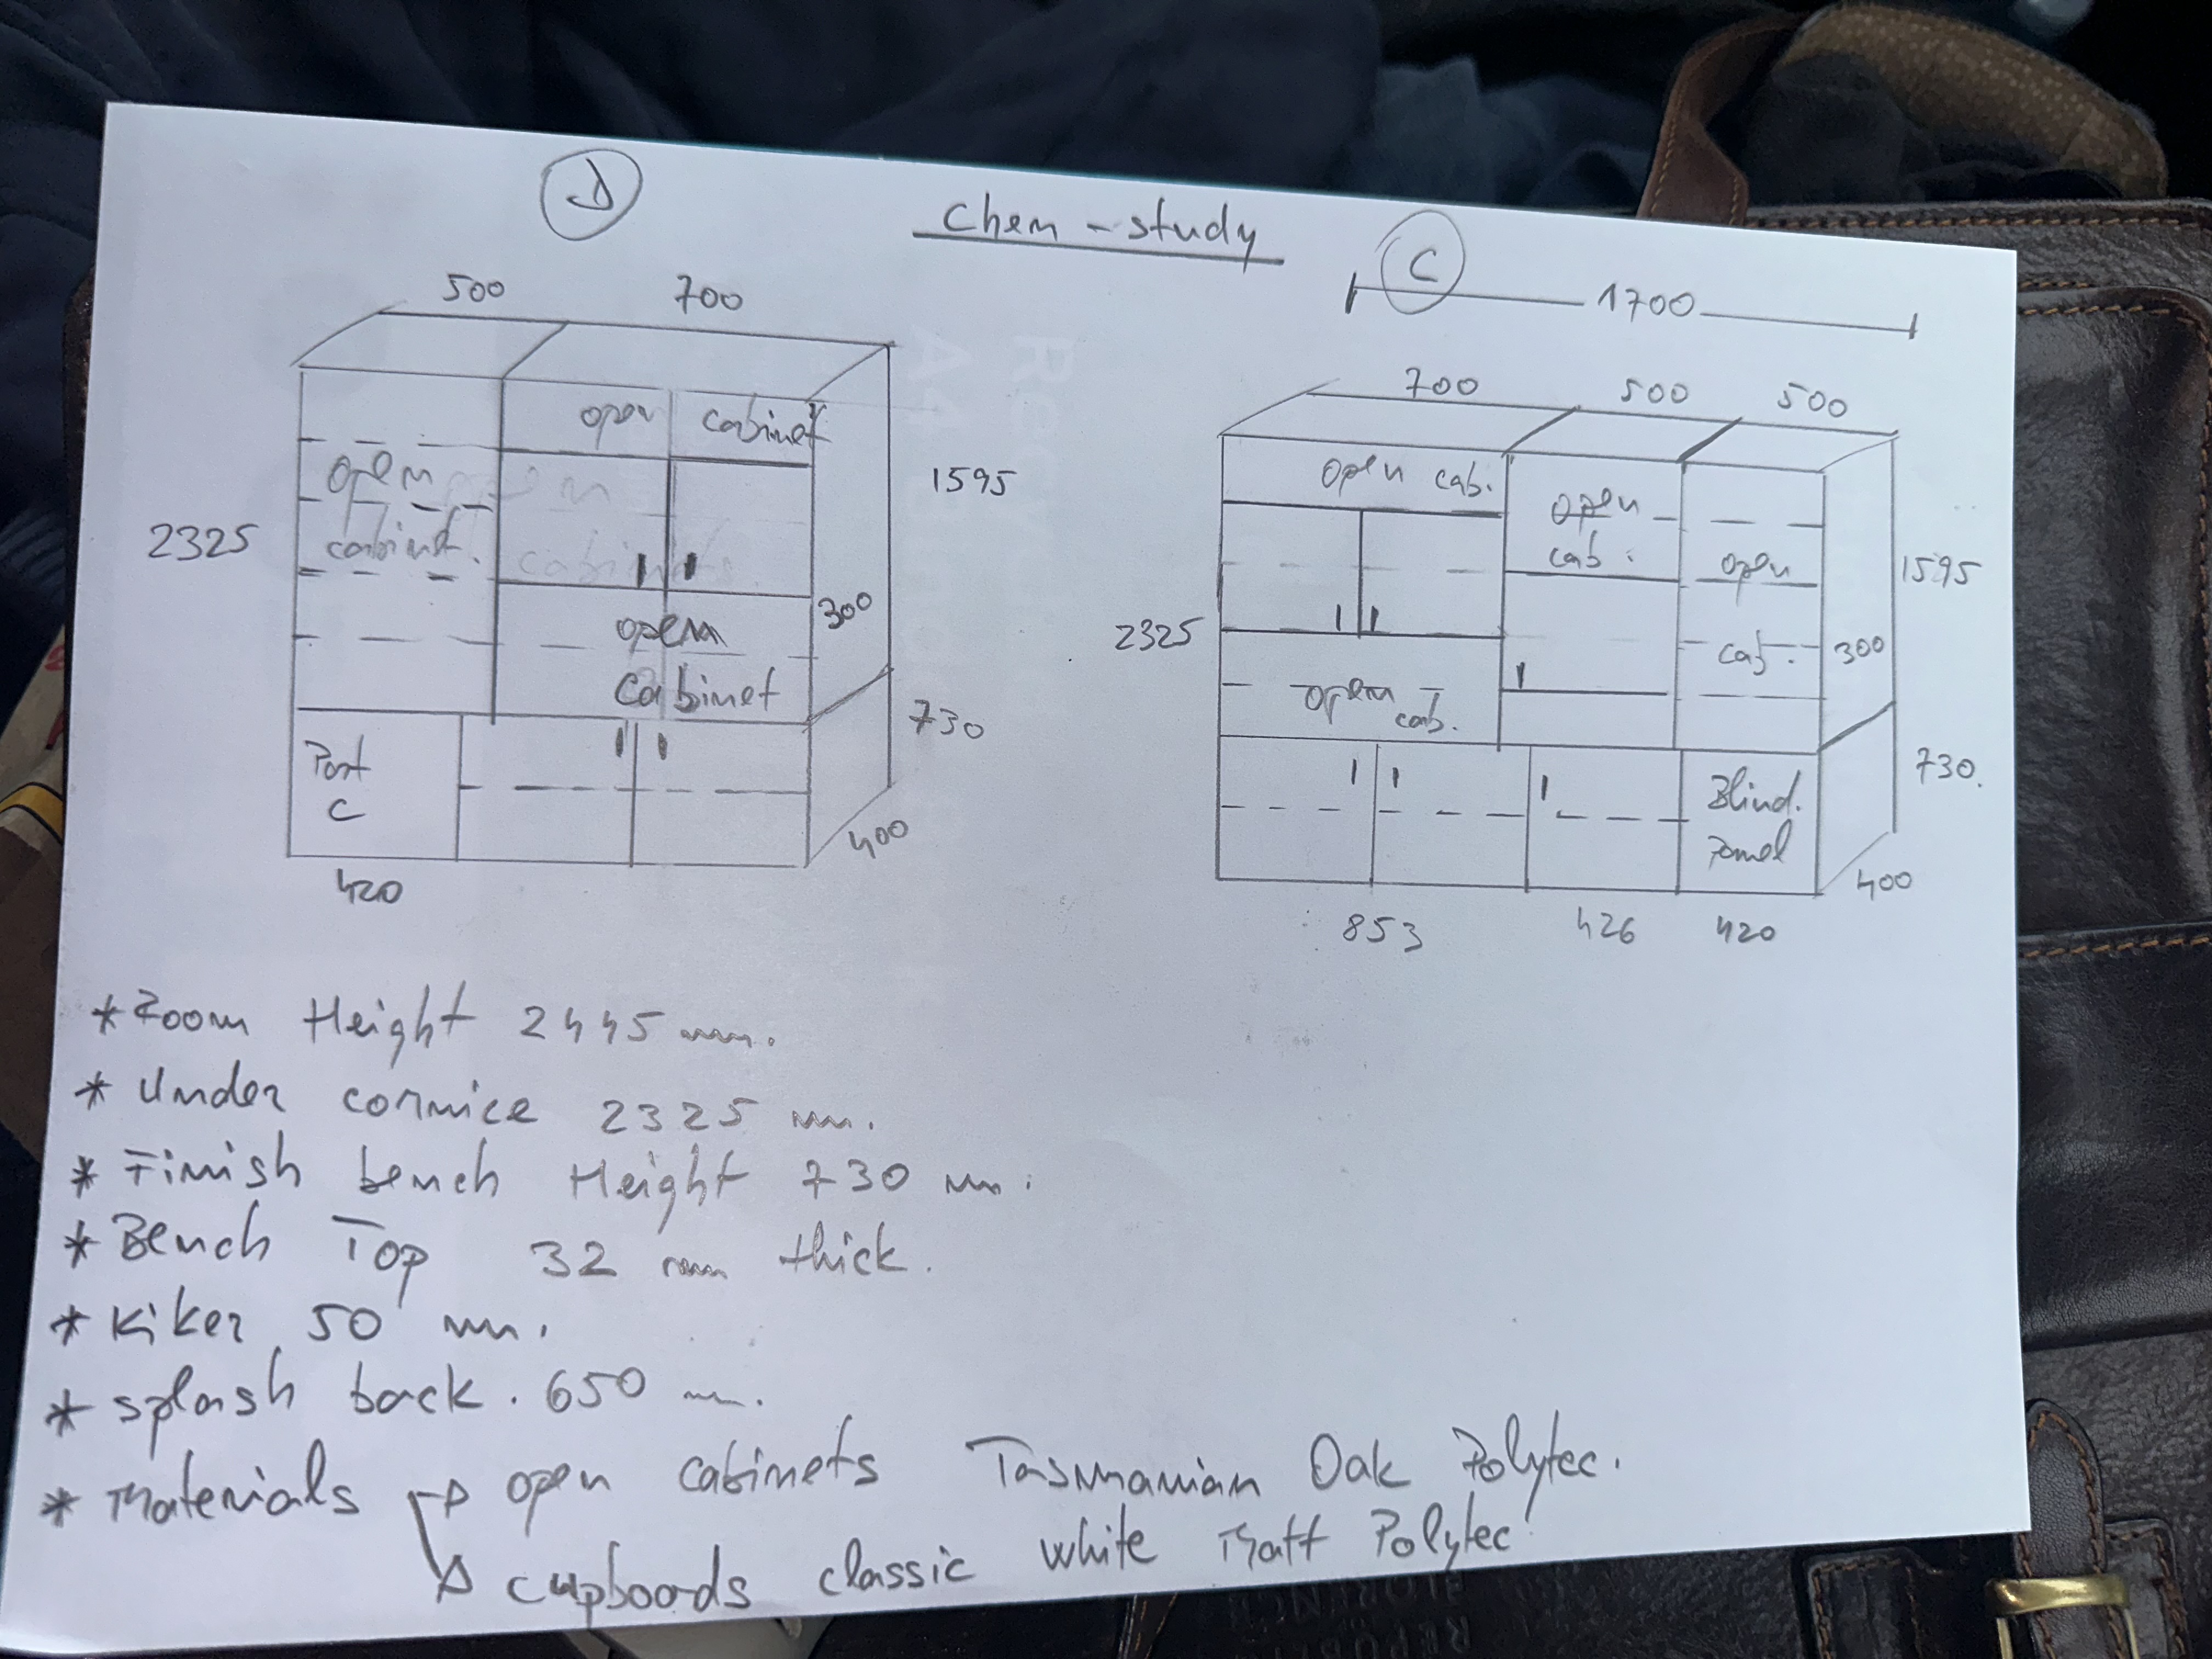 D
Chem - study
C
1700
500 700
700 500 500
open cabinet
open cabinet.
2325
1595
300
open cabinet
730
Part C
400
420
open cab.
open cab.
open cab.
2325
1595
300
open cab.
730.
Blind. Panel
400
853 426 420
* Room Height 2445 mm.
* Under cornice 2325 mm.
* Finish bench Height 730 mm.
* Bench Top 32 mm thick.
* Kiker 50 mm.
* splash back. 650 mm.
* Materials → open cabinets Tasmanian Oak Polytec.
→ cupboards classic white Matt Polytec